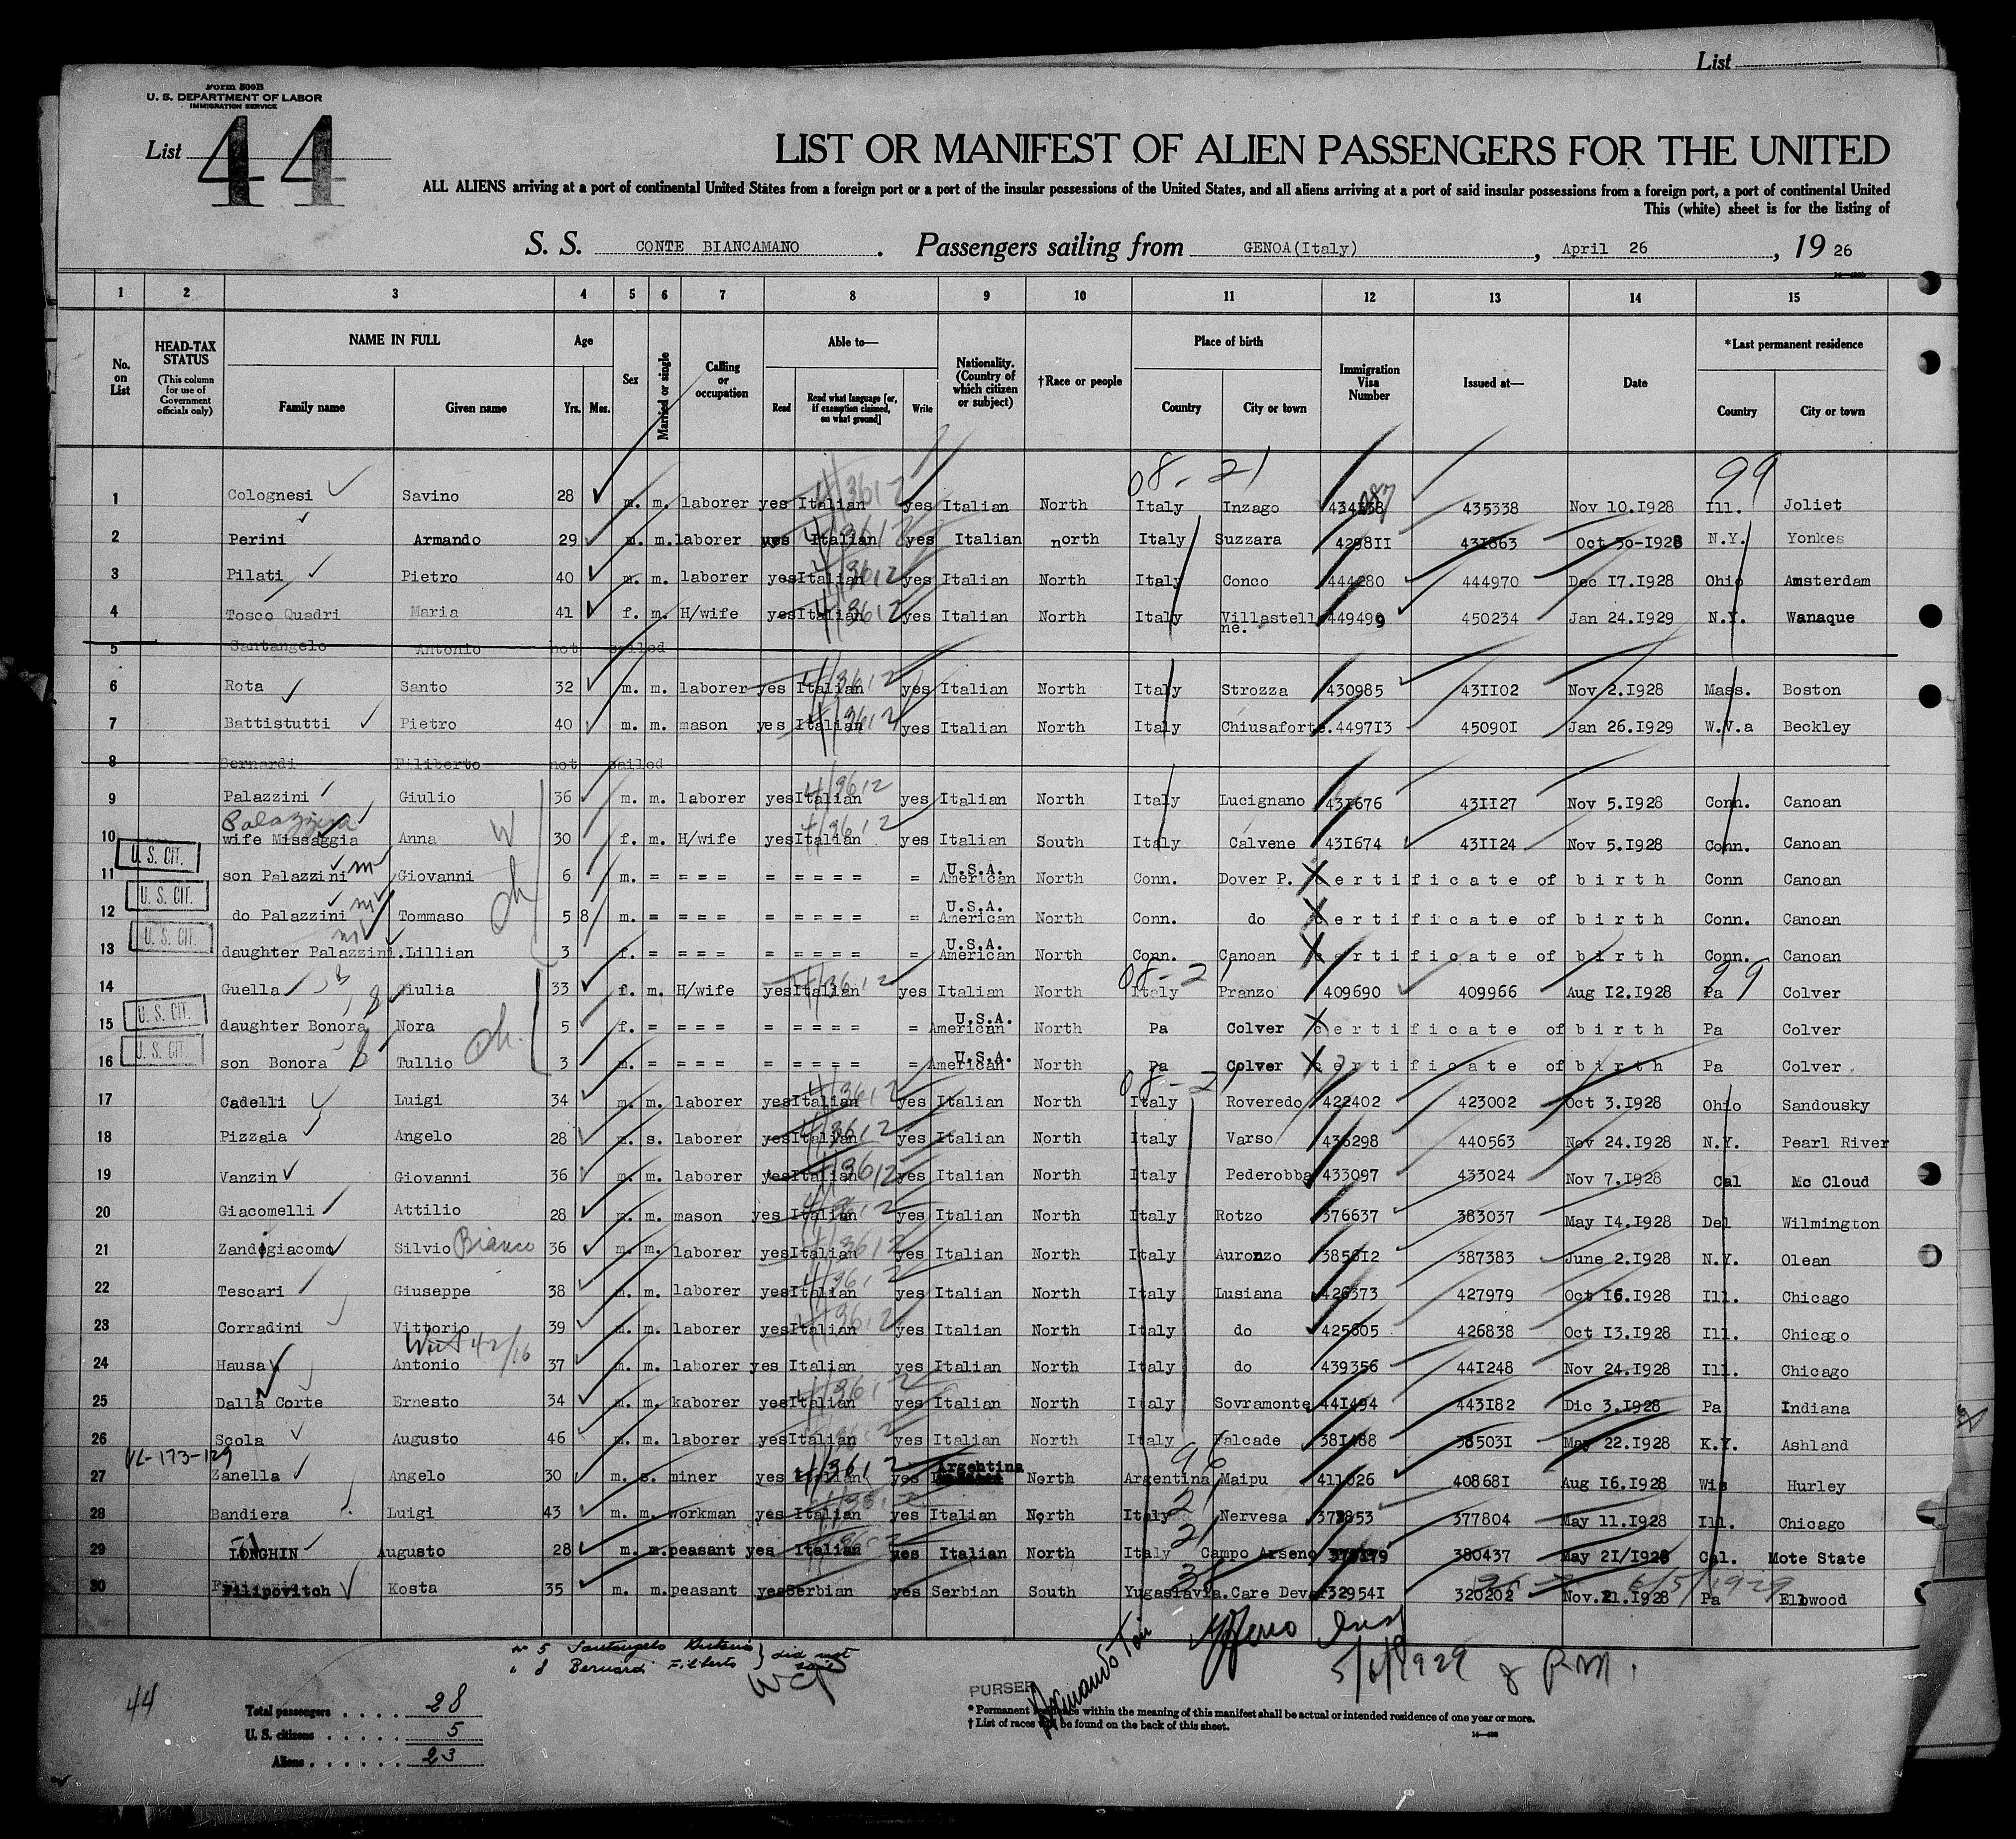 List
Form 500B
U. S. DEPARTMENT OF LABOR
IMMIGRATION SERVICE
List 44
LIST OR MANIFEST OF ALIEN PASSENGERS FOR THE UNITED
ALL ALIENS arriving at a port of continental United States from a foreign port or a port of the insular possessions of the United States, and all aliens arriving at a port of said insular possessions from a foreign port, a port of continental United
This (white) sheet is for the listing of
S. S. CONTE BIANCAMANO . Passengers sailing from GENOA(Italy) , April 26 , 19 26
1 2 3 4 5 6 7 8 9 10 11 12 13 14 15
No. on List
HEAD-TAX STATUS (This column for use of Government officials only)
NAME IN FULL Family name Given name
Age Yrs. Mos.
Sex
Married or single
Calling or occupation
Able to— Read Read what language [or, if exemption claimed, on what ground] Write
Nationality. (Country of which citizen or subject)
†Race or people
Place of birth Country City or town
Immigration Visa Number
Issued at—
Date
*Last permanent residence Country City or town
08-21 99
1 Colognesi Savino 28 m. m. laborer yes Italian yes Italian North Italy Inzago 435338 Nov 10.1928 Ill. Joliet
2 Perini Armando 29 m. m. laborer yes Italian yes Italian north Italy Suzzara 429811 431863 Oct 30-1928 N.Y. Yonkes
3 Pilati Pietro 40 m. m. laborer yes Italian yes Italian North Italy Conco 444280 444970 Dec 17.1928 Ohio Amsterdam
4 Tosco Quadri Maria 41 f. m. H/wife yes Italian yes Italian North Italy Villastell ne. 449499 450234 Jan 24.1929 N.Y. Wanaque
5 Santangelo Antonio not sailed
6 Rota Santo 32 m. m. laborer yes Italian yes Italian North Italy Strozza 430985 431102 Nov 2.1928 Mass. Boston
7 Battistutti Pietro 40 m. m. mason yes Italian yes Italian North Italy Chiusaforte. 449713 450901 Jan 26.1929 W.V.a Beckley
8 Bernardi Filiberto not sailed
9 Palazzini Giulio 36 m. m. laborer yes Italian yes Italian North Italy Lucignano 431676 431127 Nov 5.1928 Conn. Canoan
Palazzini
10 wife Missaggia Anna W 30 f. m. H/wife yes Italian yes Italian South Italy Calvene 431674 431124 Nov 5.1928 Conn. Canoan
U. S. CIT.
11 son Palazzini m Giovanni 6 m. = = = = = = = = = = U.S.A. American North Conn. Dover P. Certificate of birth Conn Canoan
U. S. CIT.
12 do Palazzini m Tommaso ch 5 8 m. = = = = = = = = = = U.S.A. American North Conn. do Certificate of birth Conn. Canoan
U. S. CIT.
13 daughter Palazzini. Lillian 3 f. = = = = = = = = = = U.S.A. American North Conn. Canoan Certificate of birth Conn. Canoan
08-21 99
14 Guella Giulia 33 f. m. H/wife yes Italian yes Italian North Italy Pranzo 409690 409966 Aug 12.1928 Pa Colver
U. S. CIT.
15 daughter Bonora Nora 5 f. = = = = = = = = = = U.S.A. American North Pa Colver Certificate of birth Pa Colver
U. S. CIT.
16 son Bonora Tullio ch. 3 m. = = = = = = = = = = U.S.A. American North Pa Colver Certificate of birth Pa Colver
08-21
17 Cadelli Luigi 34 m. m. laborer yes Italian yes Italian North Italy Roveredo 422402 423002 Oct 3.1928 Ohio Sandousky
18 Pizzaia Angelo 28 m. s. laborer yes Italian yes Italian North Italy Varso 436298 440563 Nov 24.1928 N.Y. Pearl River
19 Vanzin Giovanni 36 m. m. laborer yes Italian yes Italian North Italy Pederobba 433097 433024 Nov 7.1928 Cal Mc Cloud
20 Giacomelli Attilio 28 m. m. mason yes Italian yes Italian North Italy Rotzo 376637 383037 May 14.1928 Del Wilmington
21 Zandegiacomo Silvio Bianco 36 m. m. laborer yes Italian yes Italian North Italy Auronzo 385612 387383 June 2.1928 N.Y. Olean
22 Tescari Giuseppe 38 m. m. laborer yes Italian yes Italian North Italy Lusiana 426373 427979 Oct 16.1928 Ill. Chicago
23 Corradini Vittorio 39 m. m. laborer yes Italian yes Italian North Italy do 425605 426838 Oct 13.1928 Ill. Chicago
42/16
24 Hausa Antonio 37 m. m. laborer yes Italian yes Italian North Italy do 439356 441248 Nov 24.1928 Ill. Chicago
25 Dalla Corte Ernesto 34 m. m. kaborer yes Italian yes Italian North Italy Sovramonte 441494 443182 Dic 3.1928 Pa Indiana
26 Scola Augusto 46 m. m. laborer yes Italian yes Italian North Italy Falcade 381488 385031 May 22.1928 K.Y. Ashland
VL-173-129
27 Zanella Angelo 30 m. s. miner yes Italian yes Argentina North Argentina Maipu 411026 408681 Aug 16.1928 Wis Hurley
28 Bandiera Luigi 43 m. m. workman yes Italian yes Italian North Italy Nervesa 377804 May 11.1928 Ill. Chicago
29 LONGHIN Augusto 28 m. m. peasant yes Italian yes Italian North Italy Campo Arseno 380437 May 21/1928 Cal. Mote State
30 Filipovitch Kosta 35 m. m. peasant yes Serbian yes Serbian South Yugaslavia. Care Deva 329541 320202 Nov. 21.1928 Pa Ellwood
6/5/1929
nr 5 Santangelo Antonio } did not
" 8 Bernardi Filiberto } sail
5/6/1929 8 P.M.
44
PURSER
Total passengers . . . . 28
U. S. citizens . . . . . 5
Aliens . . . . . . 23
* Permanent residence within the meaning of this manifest shall be actual or intended residence of one year or more.
† List of races will be found on the back of this sheet.